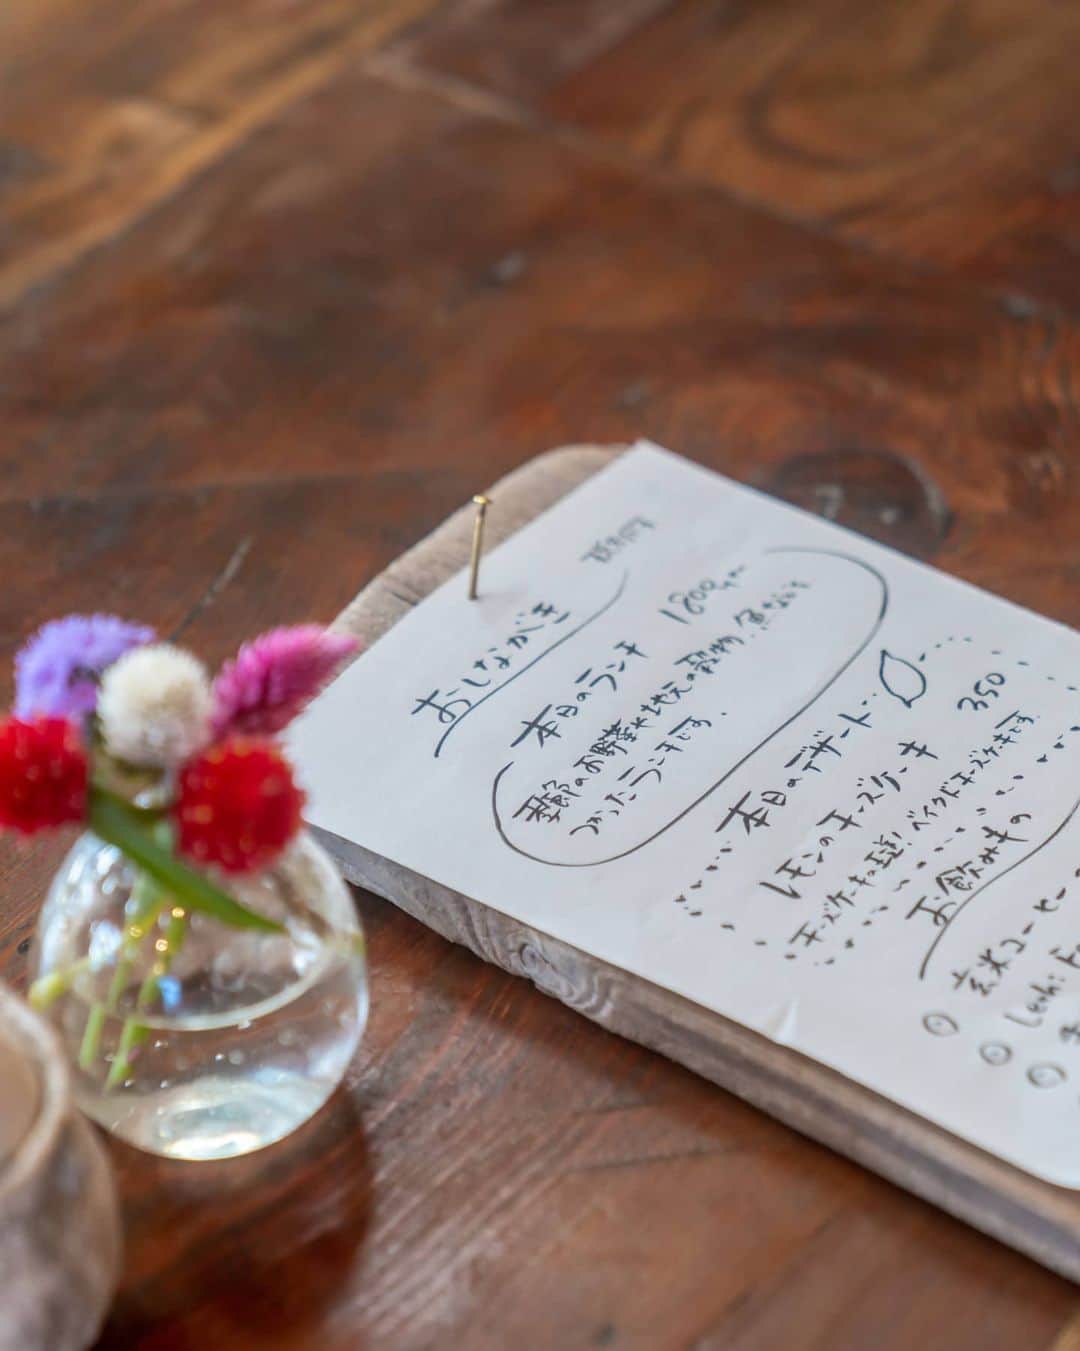 おしながき
本日のランチ 1800
季節のお野菜や地元の穀物、魚などを
つかったランチです。
本日のデザート
レモンのチーズケーキ 350
チーズケーキの王道！ベイクドチーズケーキです。
お飲みもの
玄米コーヒー